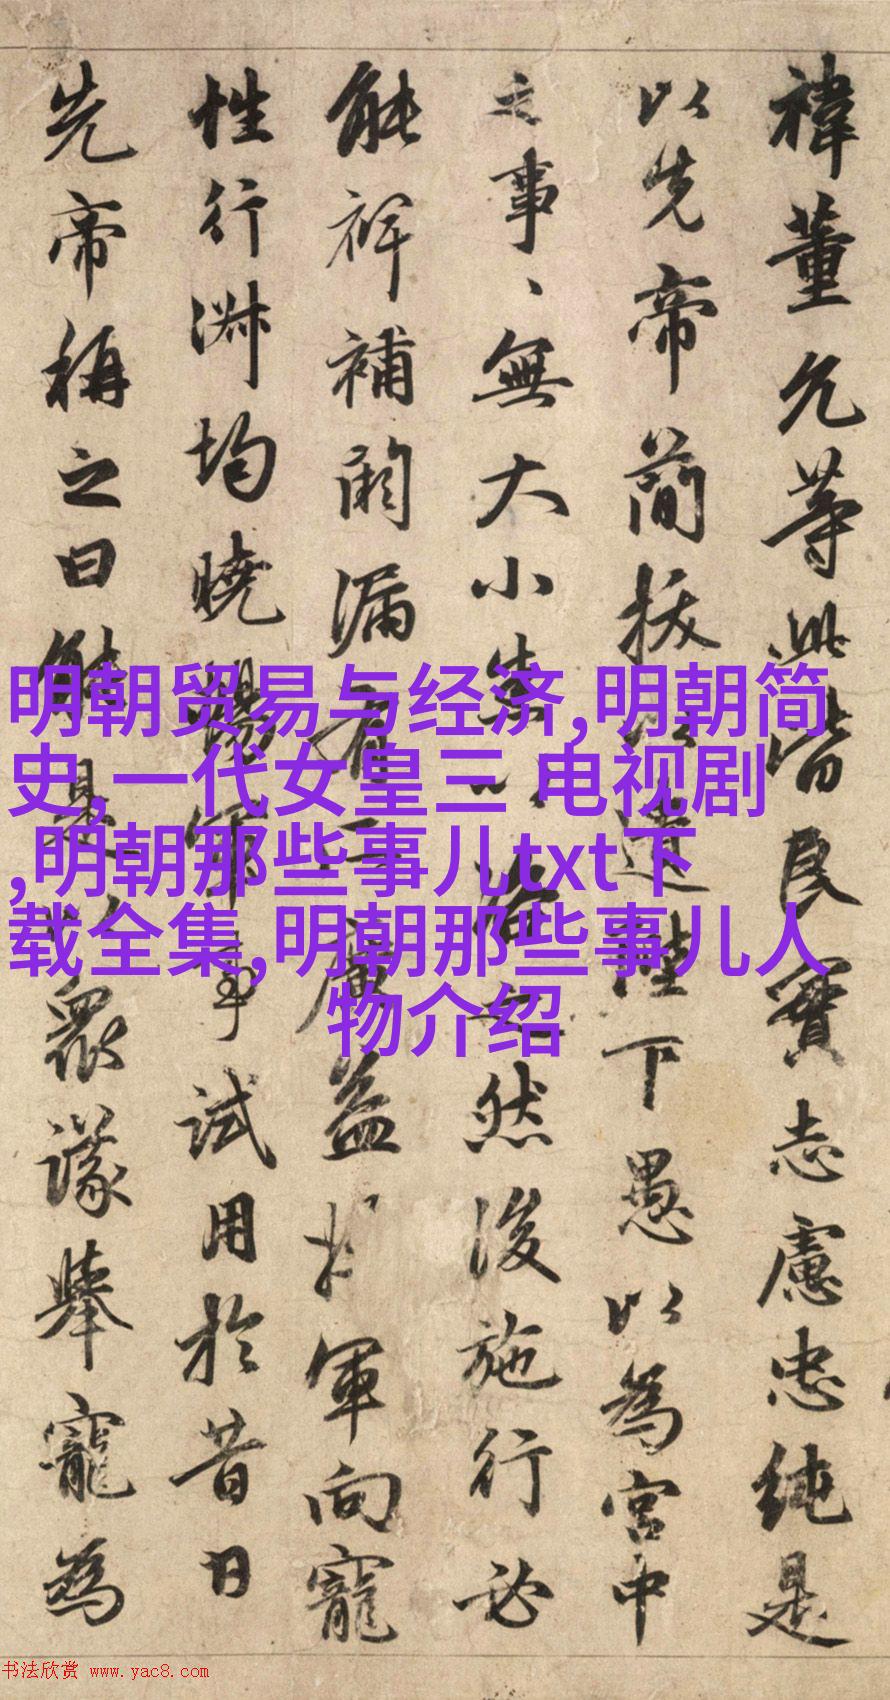 禕董允等此皆良實志慮忠純是
以先帝簡拔以遺陛下愚以為宮中
之事、無大小悉以咨之然後施行必
能裨補闕漏有所廣益將軍向寵
性行淋均曉暢軍事試用於昔日
先帝稱之曰能是以眾議舉寵為
明朝贸易与经济,明朝简
史,一代女皇三 电视剧
,明朝那些事儿txt下
载全集,明朝那些事儿人
物介绍
书法欣赏 www.yac8.com